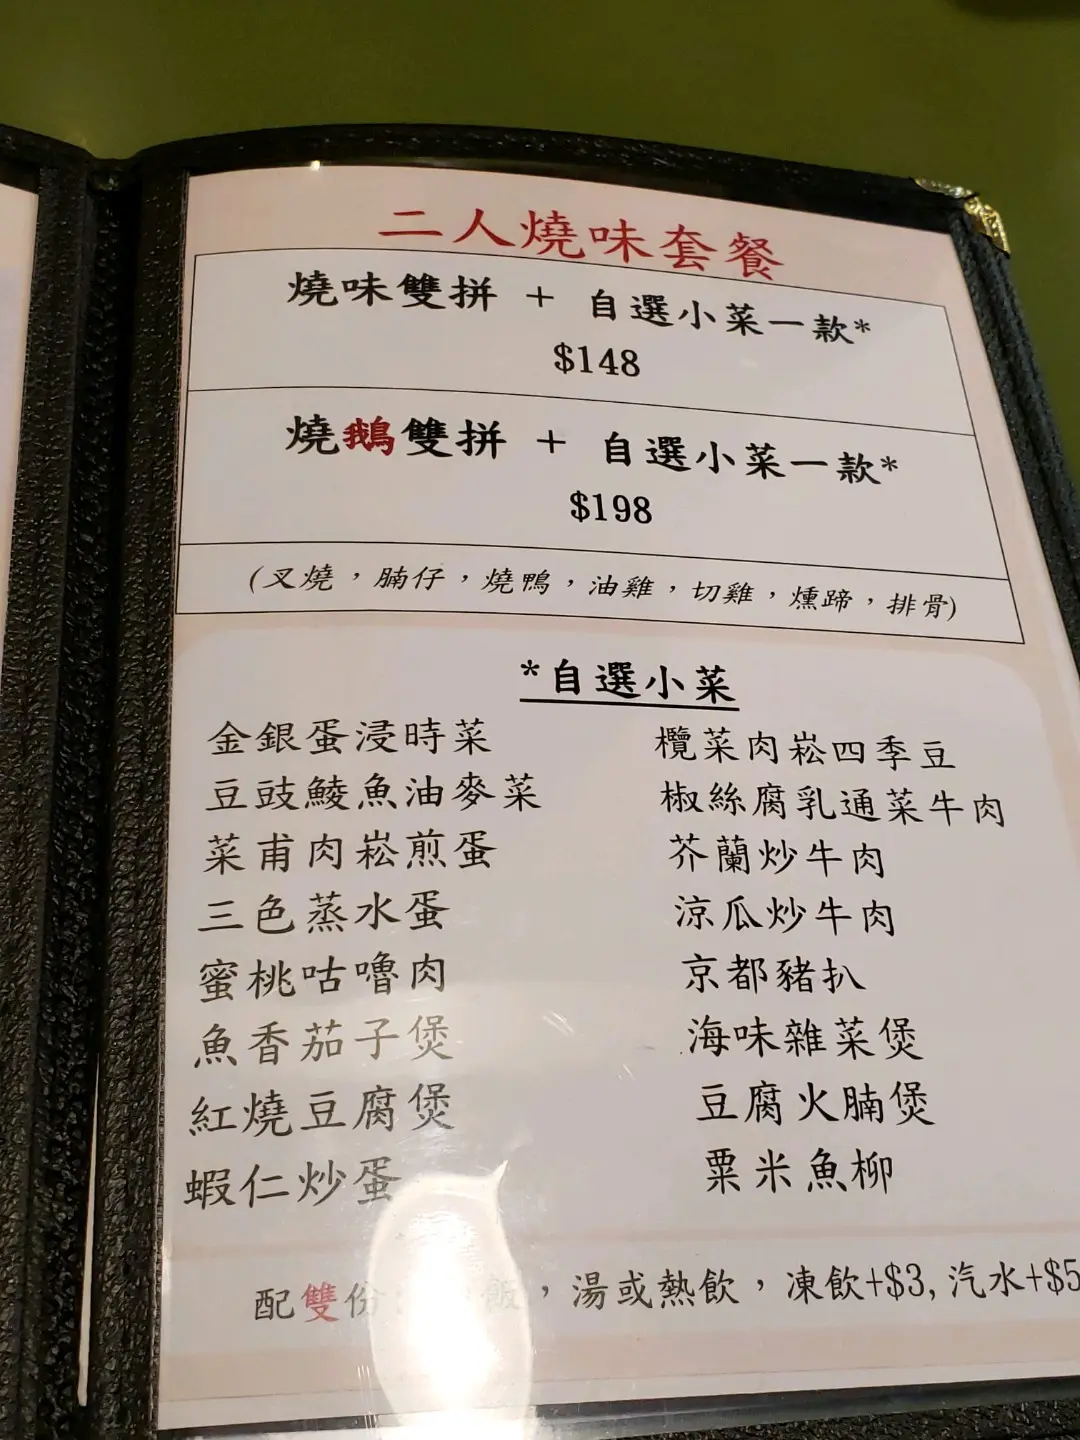 二人燒味套餐
燒味雙拼 + 自選小菜一款*
$148
燒鵝雙拼 + 自選小菜一款*
$198
(叉燒，腩仔，燒鴨，油雞，切雞，燻蹄，排骨)
*自選小菜
金銀蛋浸時菜
豆豉鯪魚油麥菜
菜甫肉崧煎蛋
三色蒸水蛋
蜜桃咕嚕肉
魚香茄子煲
紅燒豆腐煲
蝦仁炒蛋
欖菜肉崧四季豆
椒絲腐乳通菜牛肉
芥蘭炒牛肉
涼瓜炒牛肉
京都豬扒
海味雜菜煲
豆腐火腩煲
粟米魚柳
配雙份 飯，湯或熱飲，凍飲+$3, 汽水+$5